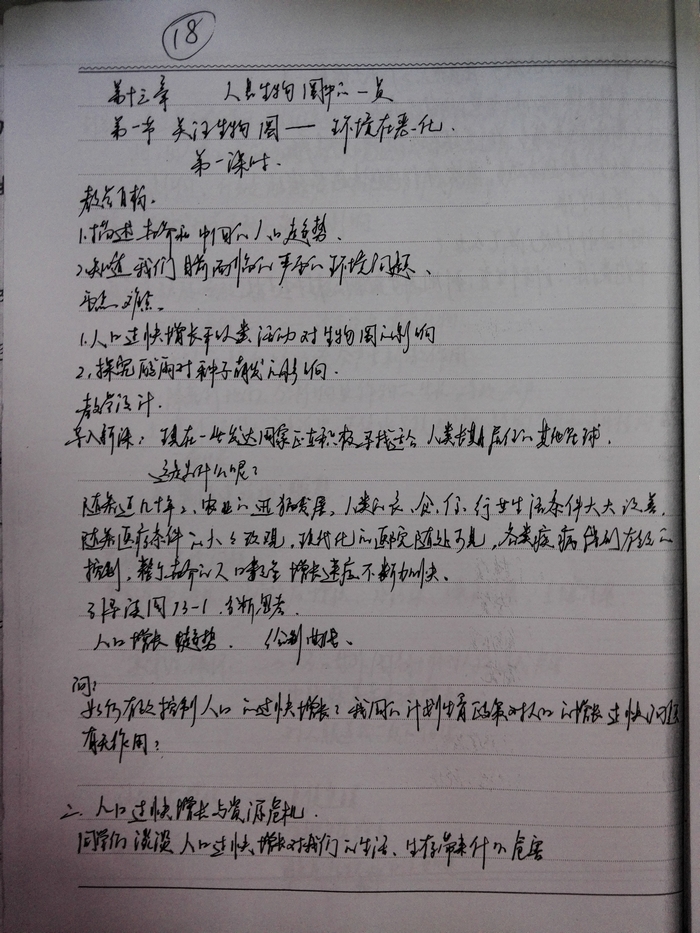 18
第十三章 人是生物圈中的一员
第一节 关注生物圈——环境在恶化.
第一课时.
教学目标.
1.描述世界和中国的人口趋势.
2.知道我们目前面临的严重的环境问题、
重点难点。
1.人口过快增长平以类活动对生物圈的影响
2.探究酸雨对种子萌发的影响.
教学设计.
导入新课: 现在一些发达国家正在积极寻找适合人类长期居住的其他星球.
这是为什么呢?
随着近几十年、农业的迅猛发展,人类的衣、食、住、行等生活条件大大改善.
随着医疗条件的大大改观,现代化的医院随处可见,各类疾病得到有效的
控制,整个世界的人口数量增长速度不断加快、
引导读图13-1.分析思考.
人口增长趋势. 绘制曲线.
问:
如何有效控制人口的过快增长?我国的计划生育政策对人口的增长过快问题
有无作用?
二. 人口过快增长与资源危机.
同学们谈谈人口过快增长对我们的生活、生存带来什么危害